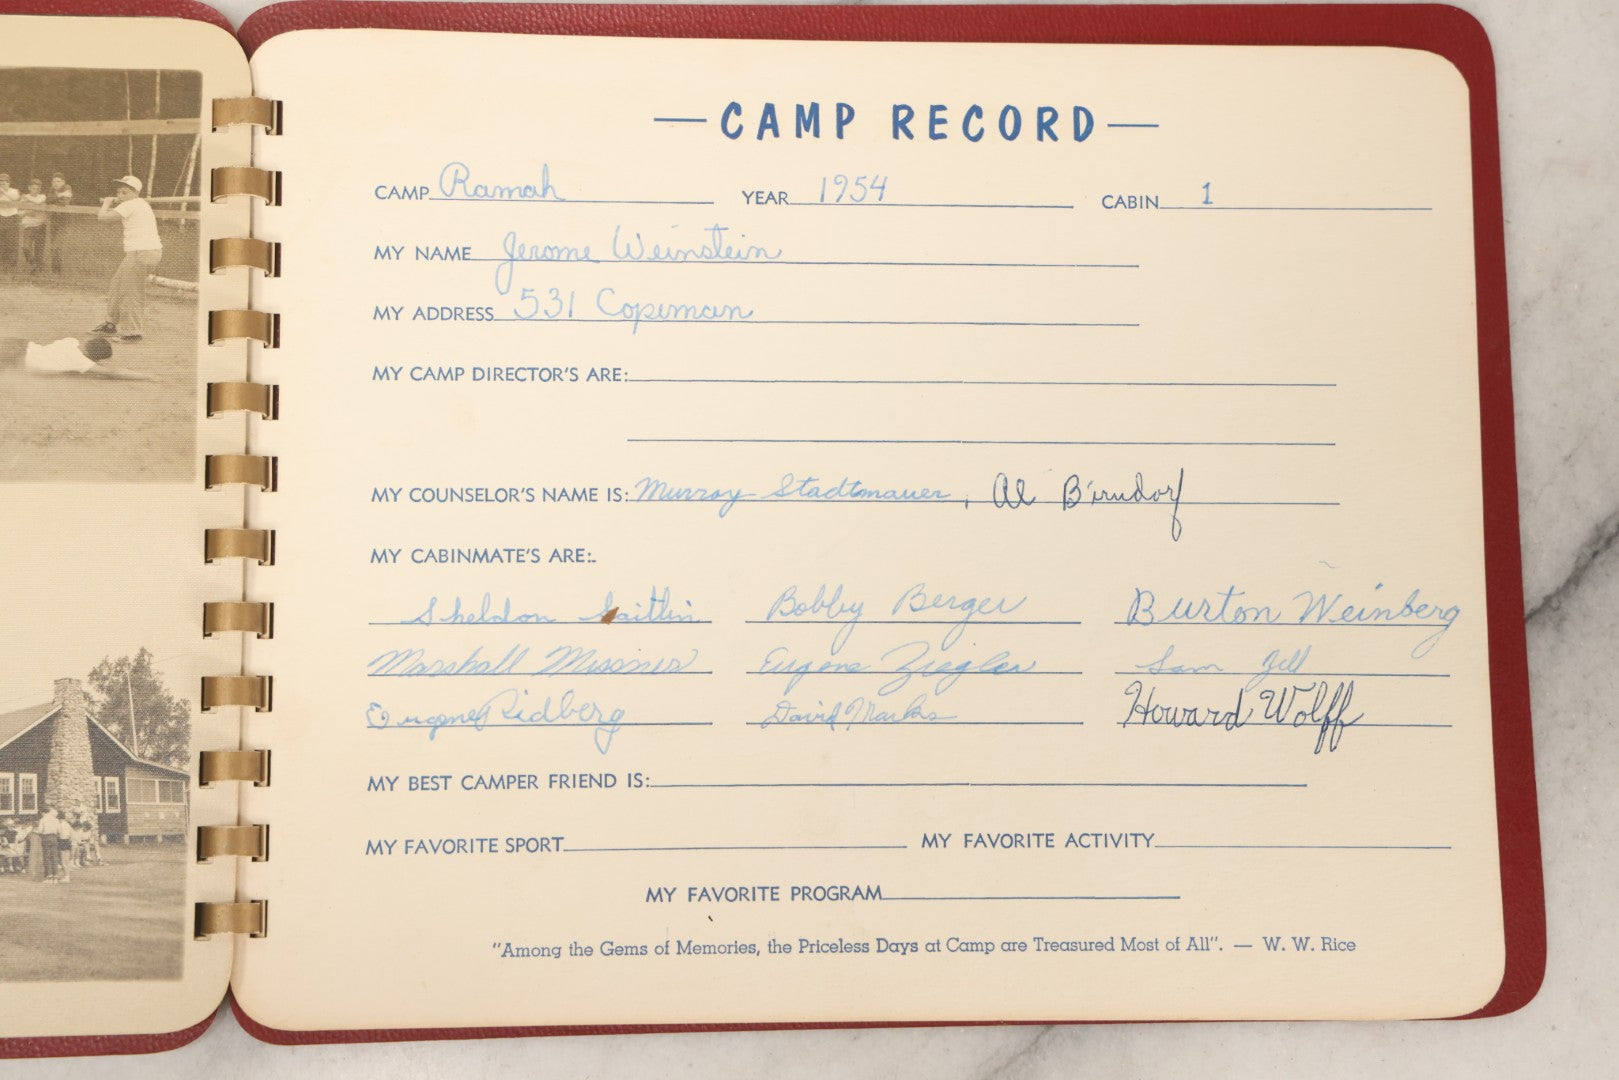 —CAMP RECORD—
CAMP Ramah YEAR 1954 CABIN 1
MY NAME Jerome Weinstein
MY ADDRESS 531 Copeman
MY CAMP DIRECTOR'S ARE:
MY COUNSELOR'S NAME IS: Murray Stadtmauer, Al Birndorf
MY CABINMATE'S ARE:
Sheldon Bobby Berger Burton Weinberg
Marshall Eugene Ziegler Sam Zell
Eugene Ridberg David Marks Howard Wolff
MY BEST CAMPER FRIEND IS:
MY FAVORITE SPORT MY FAVORITE ACTIVITY
MY FAVORITE PROGRAM
"Among the Gems of Memories, the Priceless Days at Camp are Treasured Most of All". — W. W. Rice